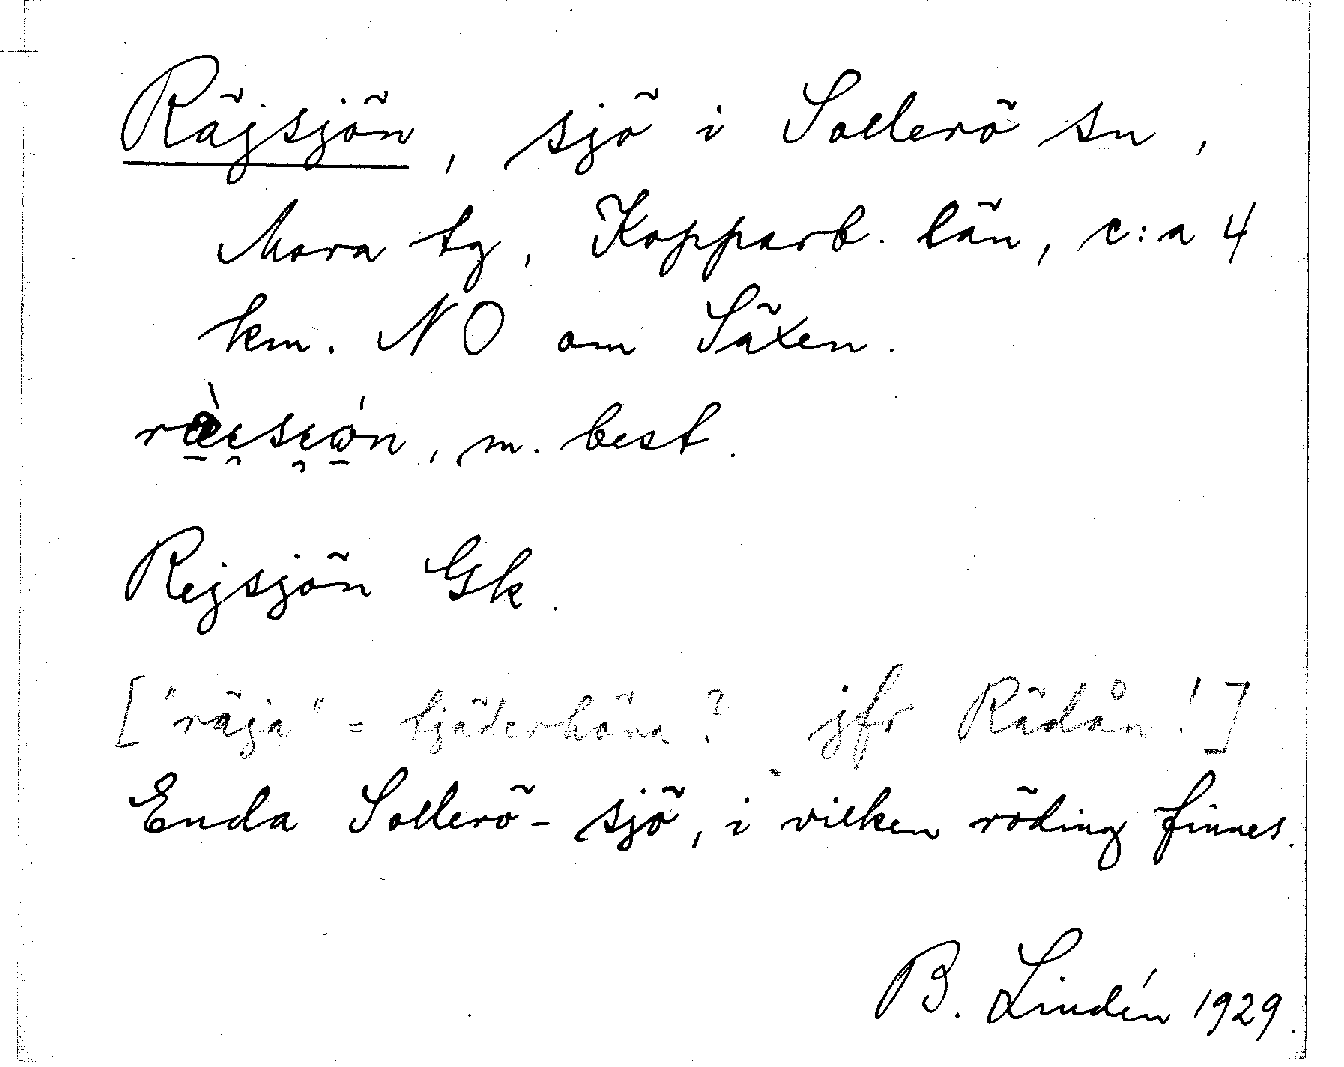 Räjsjön, sjö i Sollerö sn,
Mora tg, Kopparb. län, c:a 4
km. NO om Säxen.
m. best.
Rejsjön Gk.
['räja' = tjäderhöna? jfr Rädån!]
Enda Sollerö-sjö, i vilken röding finnes.
B. Lindén 1929.